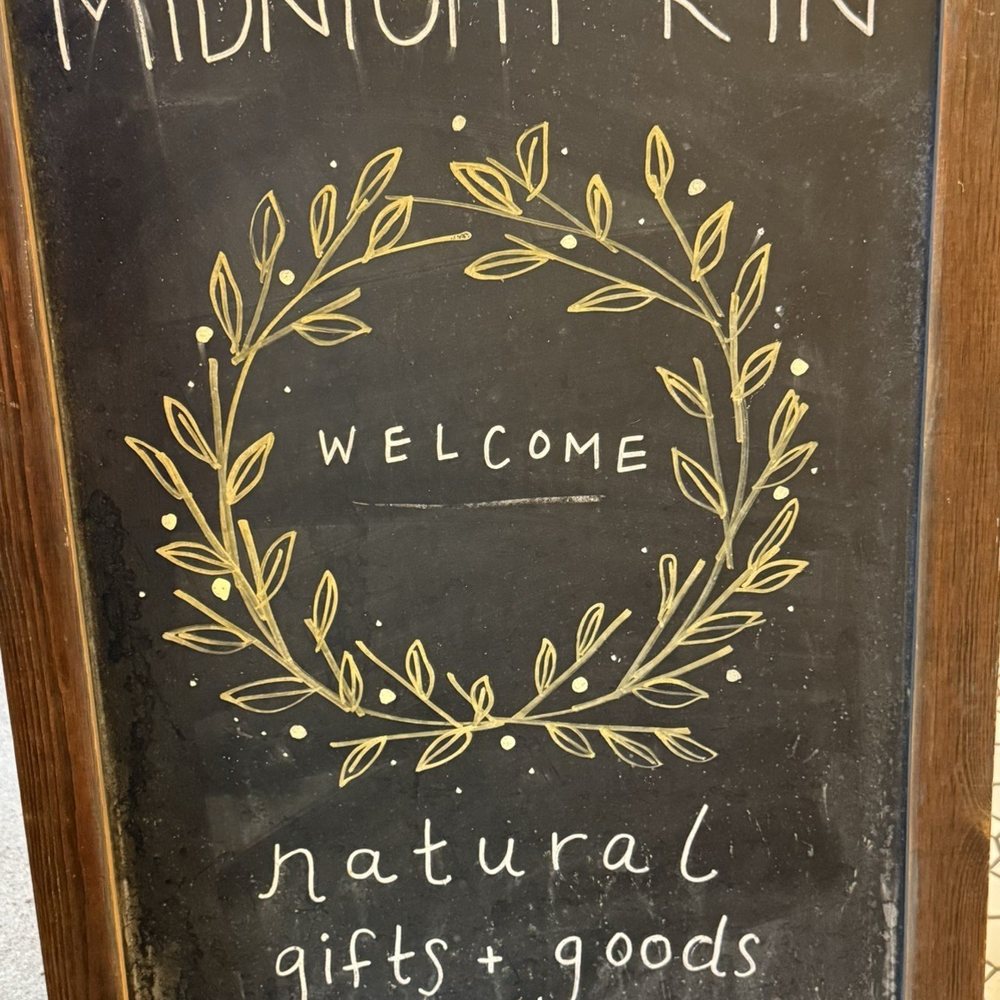 MIDNIGHT KIN
WELCOME
natural
gifts + goods